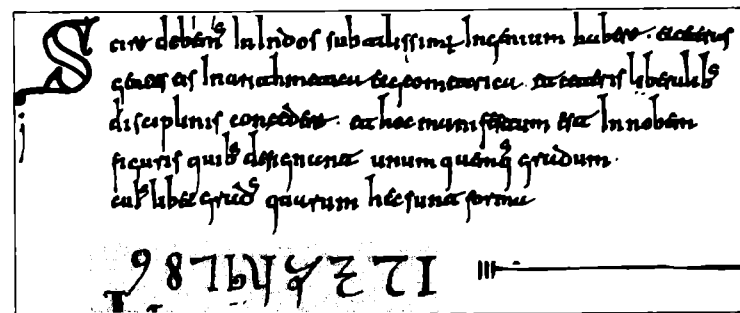 Scire debem⁹ In Indos subtilissimum Ingenium habere. et ceteras
gentes eis In arithmetica et geometrica et ceteris liberalib⁹
disciplinis concedere. et hoc manifestum est In nobem
figuris quib⁹ designant unum quemq⁹ gradum.
cui⁹libet grad⁹ quarum hec sunt forma
9 8 7 6 5 4 3 2 1